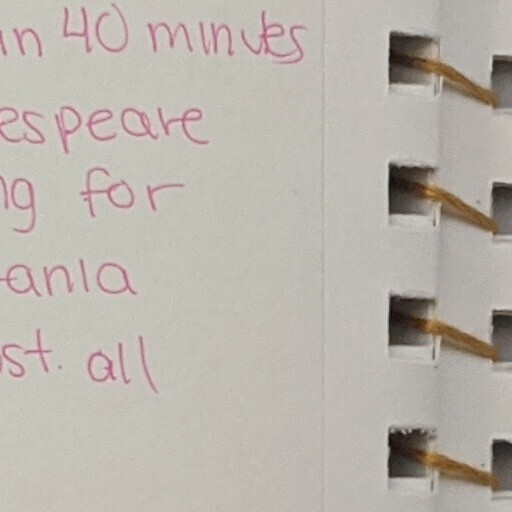 in 40 minutes
espeare
ng for
ania
st. all